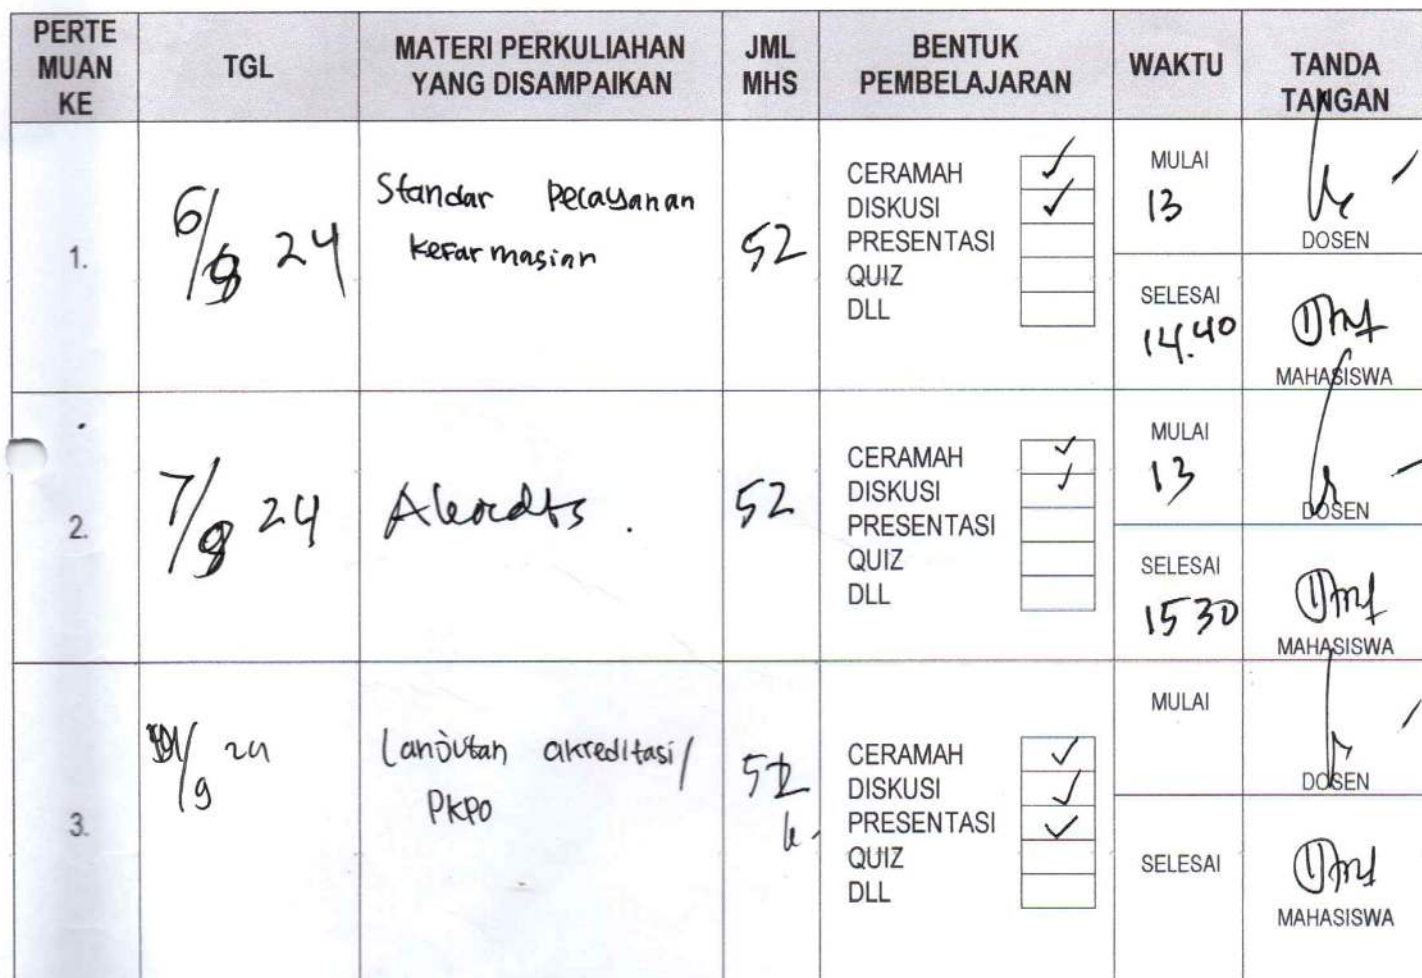 PERTE
MUAN
KE
TGL
MATERI PERKULIAHAN
YANG DISAMPAIKAN
JML
MHS
BENTUK
PEMBELAJARAN
WAKTU
TANDA
TANGAN
1.
6/9 24
Standar Pelayanan
kefarmasian
52
CERAMAH ✓
DISKUSI ✓
PRESENTASI
QUIZ
DLL
MULAI
13
DOSEN
SELESAI
14.40
MAHASISWA
2.
7/9 24
52
CERAMAH ✓
DISKUSI ✓
PRESENTASI
QUIZ
DLL
MULAI
13
DOSEN
SELESAI
15 30
MAHASISWA
3.
/9 24
Lanjutan akreditasi/
PKPO
52
CERAMAH ✓
DISKUSI ✓
PRESENTASI ✓
QUIZ
DLL
MULAI
DOSEN
SELESAI
MAHASISWA